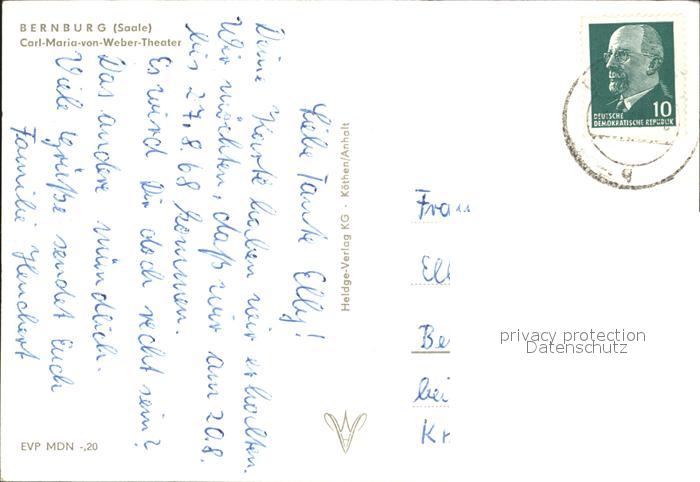 BERNBURG (Saale)
Carl-Maria-von-Weber-Theater
Liebe Tante Elly!
Deine Karte haben wir erhalten.
Wir möchten, daß wir am 20.8.
bis 27.8.68 kommen.
Es wird Dir doch recht sein?
Das andere mündlich.
Viele Grüße sendet Euch
Familie
EVP MDN -,20
Heldge-Verlag KG · Köthen/Anhalt
10
DEUTSCHE
DEMOKRATISCHE REPUBLIK
Frau
Ell
Be
bei
Kr
privacy protection
Datenschutz